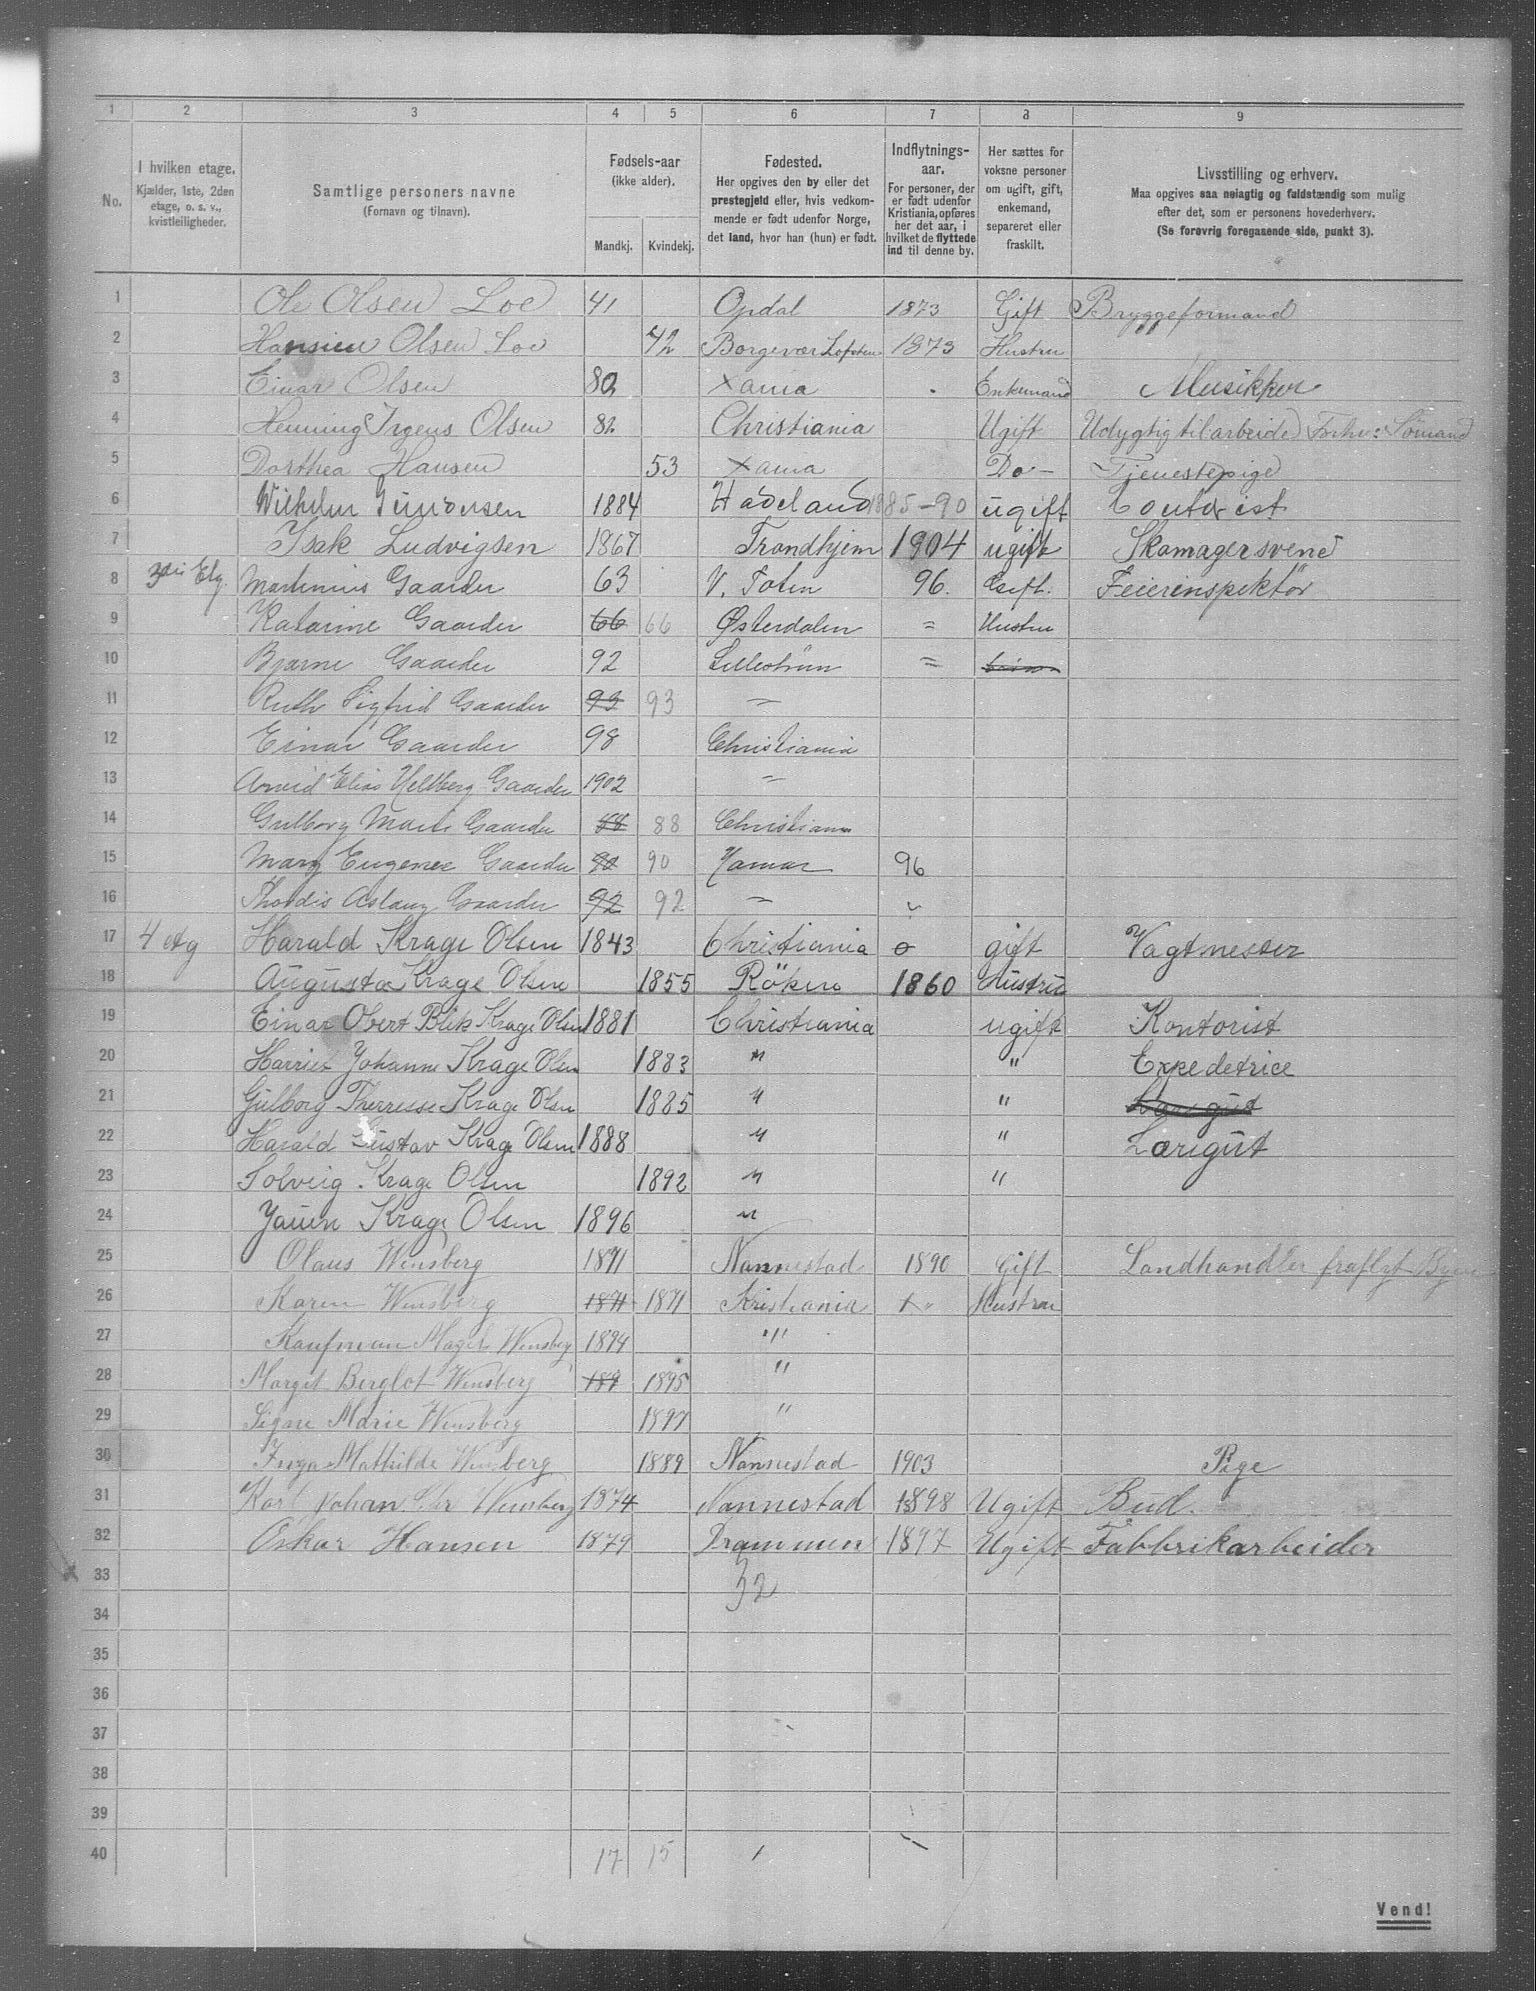 1 2 3 4 5 6 7 8 9
No.
I hvilken etage.
Kjælder, 1ste, 2den
etage, o. s. v.,
kvistleiligheder.
Samtlige personers navne
(Fornavn og tilnavn).
Fødsels-aar
(ikke alder).
Mandkj. Kvindekj.
Fødested.
Her opgives den by eller det
prestegjeld eller, hvis vedkom-
mende er født udenfor Norge,
det land, hvor han (hun) er født.
Indflytnings-
aar.
For personer, der
er født udenfor
Kristiania, opføres
her det aar, i
hvilket de flyttede
ind til denne by.
Her sættes for
voksne personer
om ugift, gift,
enkemand,
separeret eller
fraskilt.
Livsstilling og erhverv.
Maa opgives saa nøiagtig og fuldstændig som mulig
efter det, som er personens hovederhverv.
(Se forøvrig foregaaende side, punkt 3).
1 Ole Olsen Loe 41 Opdal 1873 Gift Bryggeformand
2 Hansine Olsen Loe 42 Borgevær Lofoten 1873 Hustru
3 Einar Olsen 80 Xania Enkemand Musikker
4 Henning Irgens Olsen 82 Christiania Ugift Udygtig til arbeide Forhv: Sømand
5 Dorthea Hansen 53 Xania Do - Tjenestepige
6 Wilhelm 1884 Hadeland 1885-90 ugift
7 Isak Ludvigsen 1867 Trondhjem 1904 ugift Skomagersvend
8 3die Etg. Martinius Gaarder 63 V. Toten 96. Gift. Feierinspektør
9 Katarine Gaarder 66 66 Østerdalen = Hustru
10 Bjarne Gaarder 92 Lillestrøm =
11 Ruth Sigfrid Gaarder 93 93 "
12 Einar Gaarder 98 Christiania
13 Arvid Elias Heltberg Gaarder 1902 "
14 Gulborg Marie Gaarder 88 88 Christiania
15 Mary Eugenee Gaarder 90 90 Hamar 96
16 Thordis Aslaug Gaarder 92 92 " "
17 4 etg Harald Krage Olsen 1843 Christiania o gift Vagtmester
18 Augusta Krage Olsen 1855 Røken 1860 Hustru
19 Einar Obert Blik Krage Olsen 1881 Christiania ugift Kontorist
20 Harriet Johanne Krage Olsen 1883 " " Expedetrice
21 Gulborg Therresse Krage Olsen 1885 " " Læregut
22 Harald Gustav Krage Olsen 1888 " " Læregut
23 Solveig Krage Olsen 1892 " "
24 Krage Olsen 1896 "
25 Olaus Wensberg 1871 Nannestad 1890 Gift Landhandler fraflyt Byen
26 Karen Wensberg 1871 1871 Kristiania Hustru
27 Kaufman Wensberg 1894 "
28 Margit Berglot Wensberg 189 1895 "
29 Signe Marie Wensberg 1897 "
30 Inga Mathilde Wensberg 1889 Nannestad 1903 Pige
31 Karl Johan Wensberg 1874 Nannestad 1898 Ugift Bud.
32 Oskar Hansen 1879 Drammen 1897 Ugift Fabbrikarbeider
33 32
34
35
36
37
38
39
40 17 15
Vend!